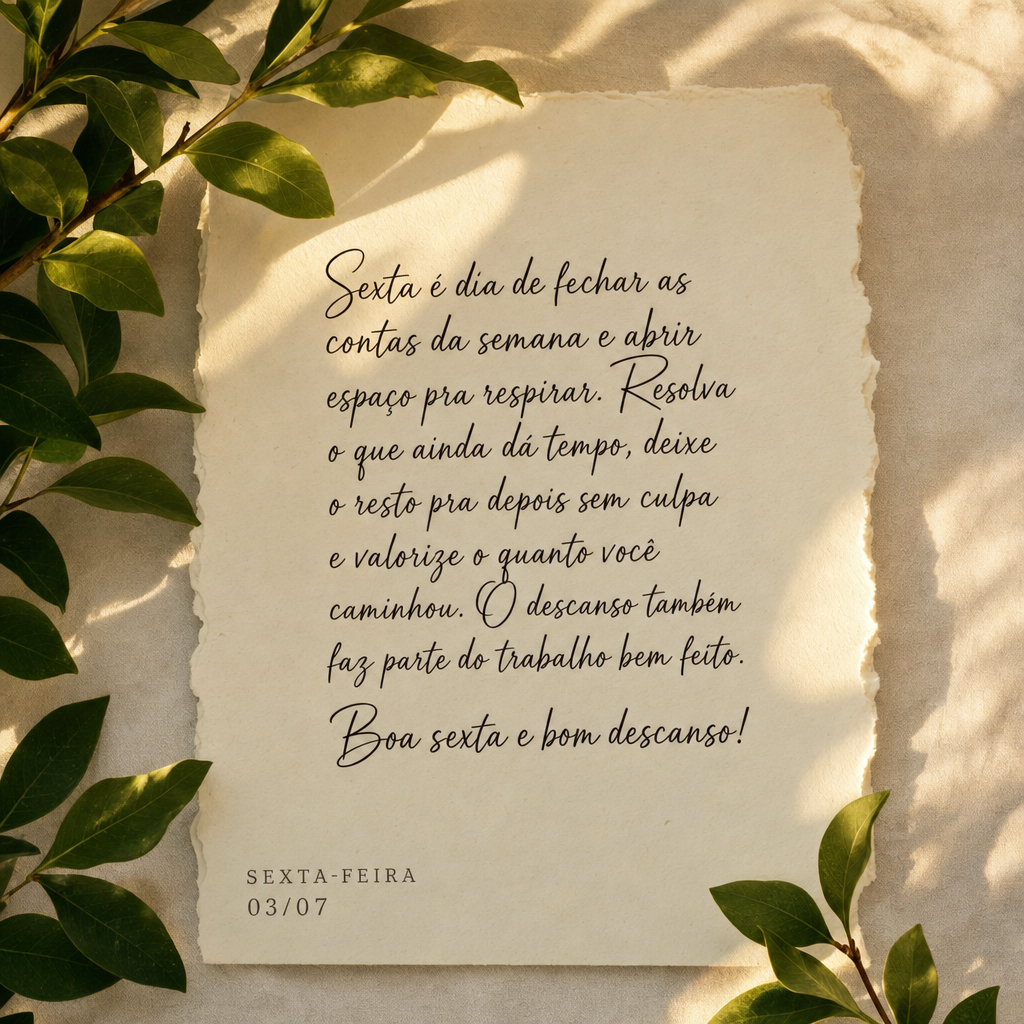 Sexta é dia de fechar as
contas da semana e abrir
espaço pra respirar. Resolva
o que ainda dá tempo, deixe
o resto pra depois sem culpa
e valorize o quanto você
caminhou. O descanso também
faz parte do trabalho bem feito.
Boa sexta e bom descanso!
SEXTA-FEIRA
03/07